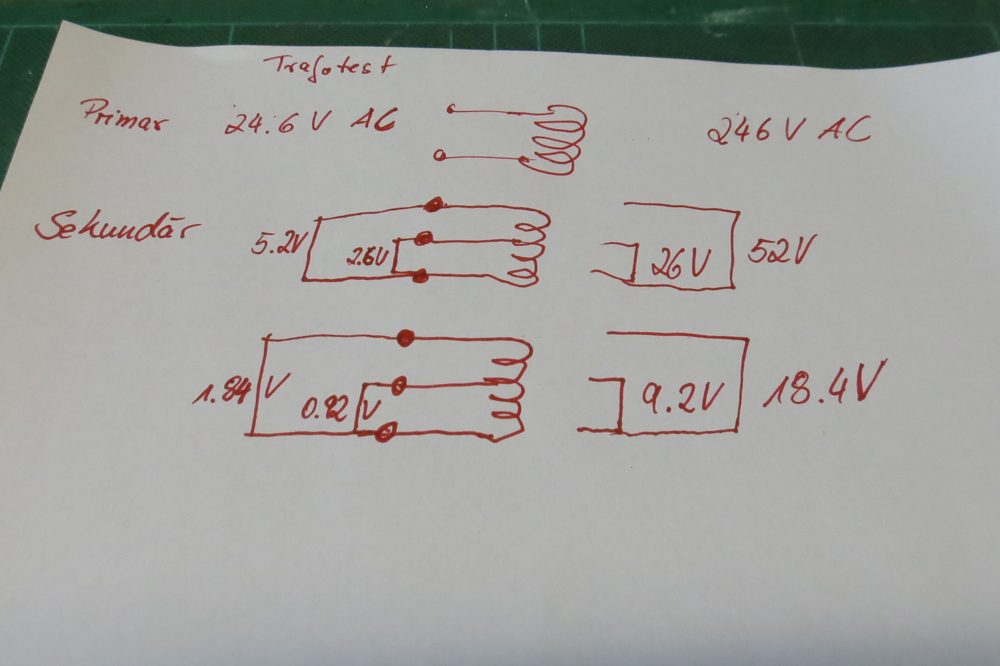 Trafotest
Primar 24.6 V AC 246 V AC
Sekundär 5.2V 2.6V 26V 52V
1.84 V 0.92 V 9.2V 18.4V